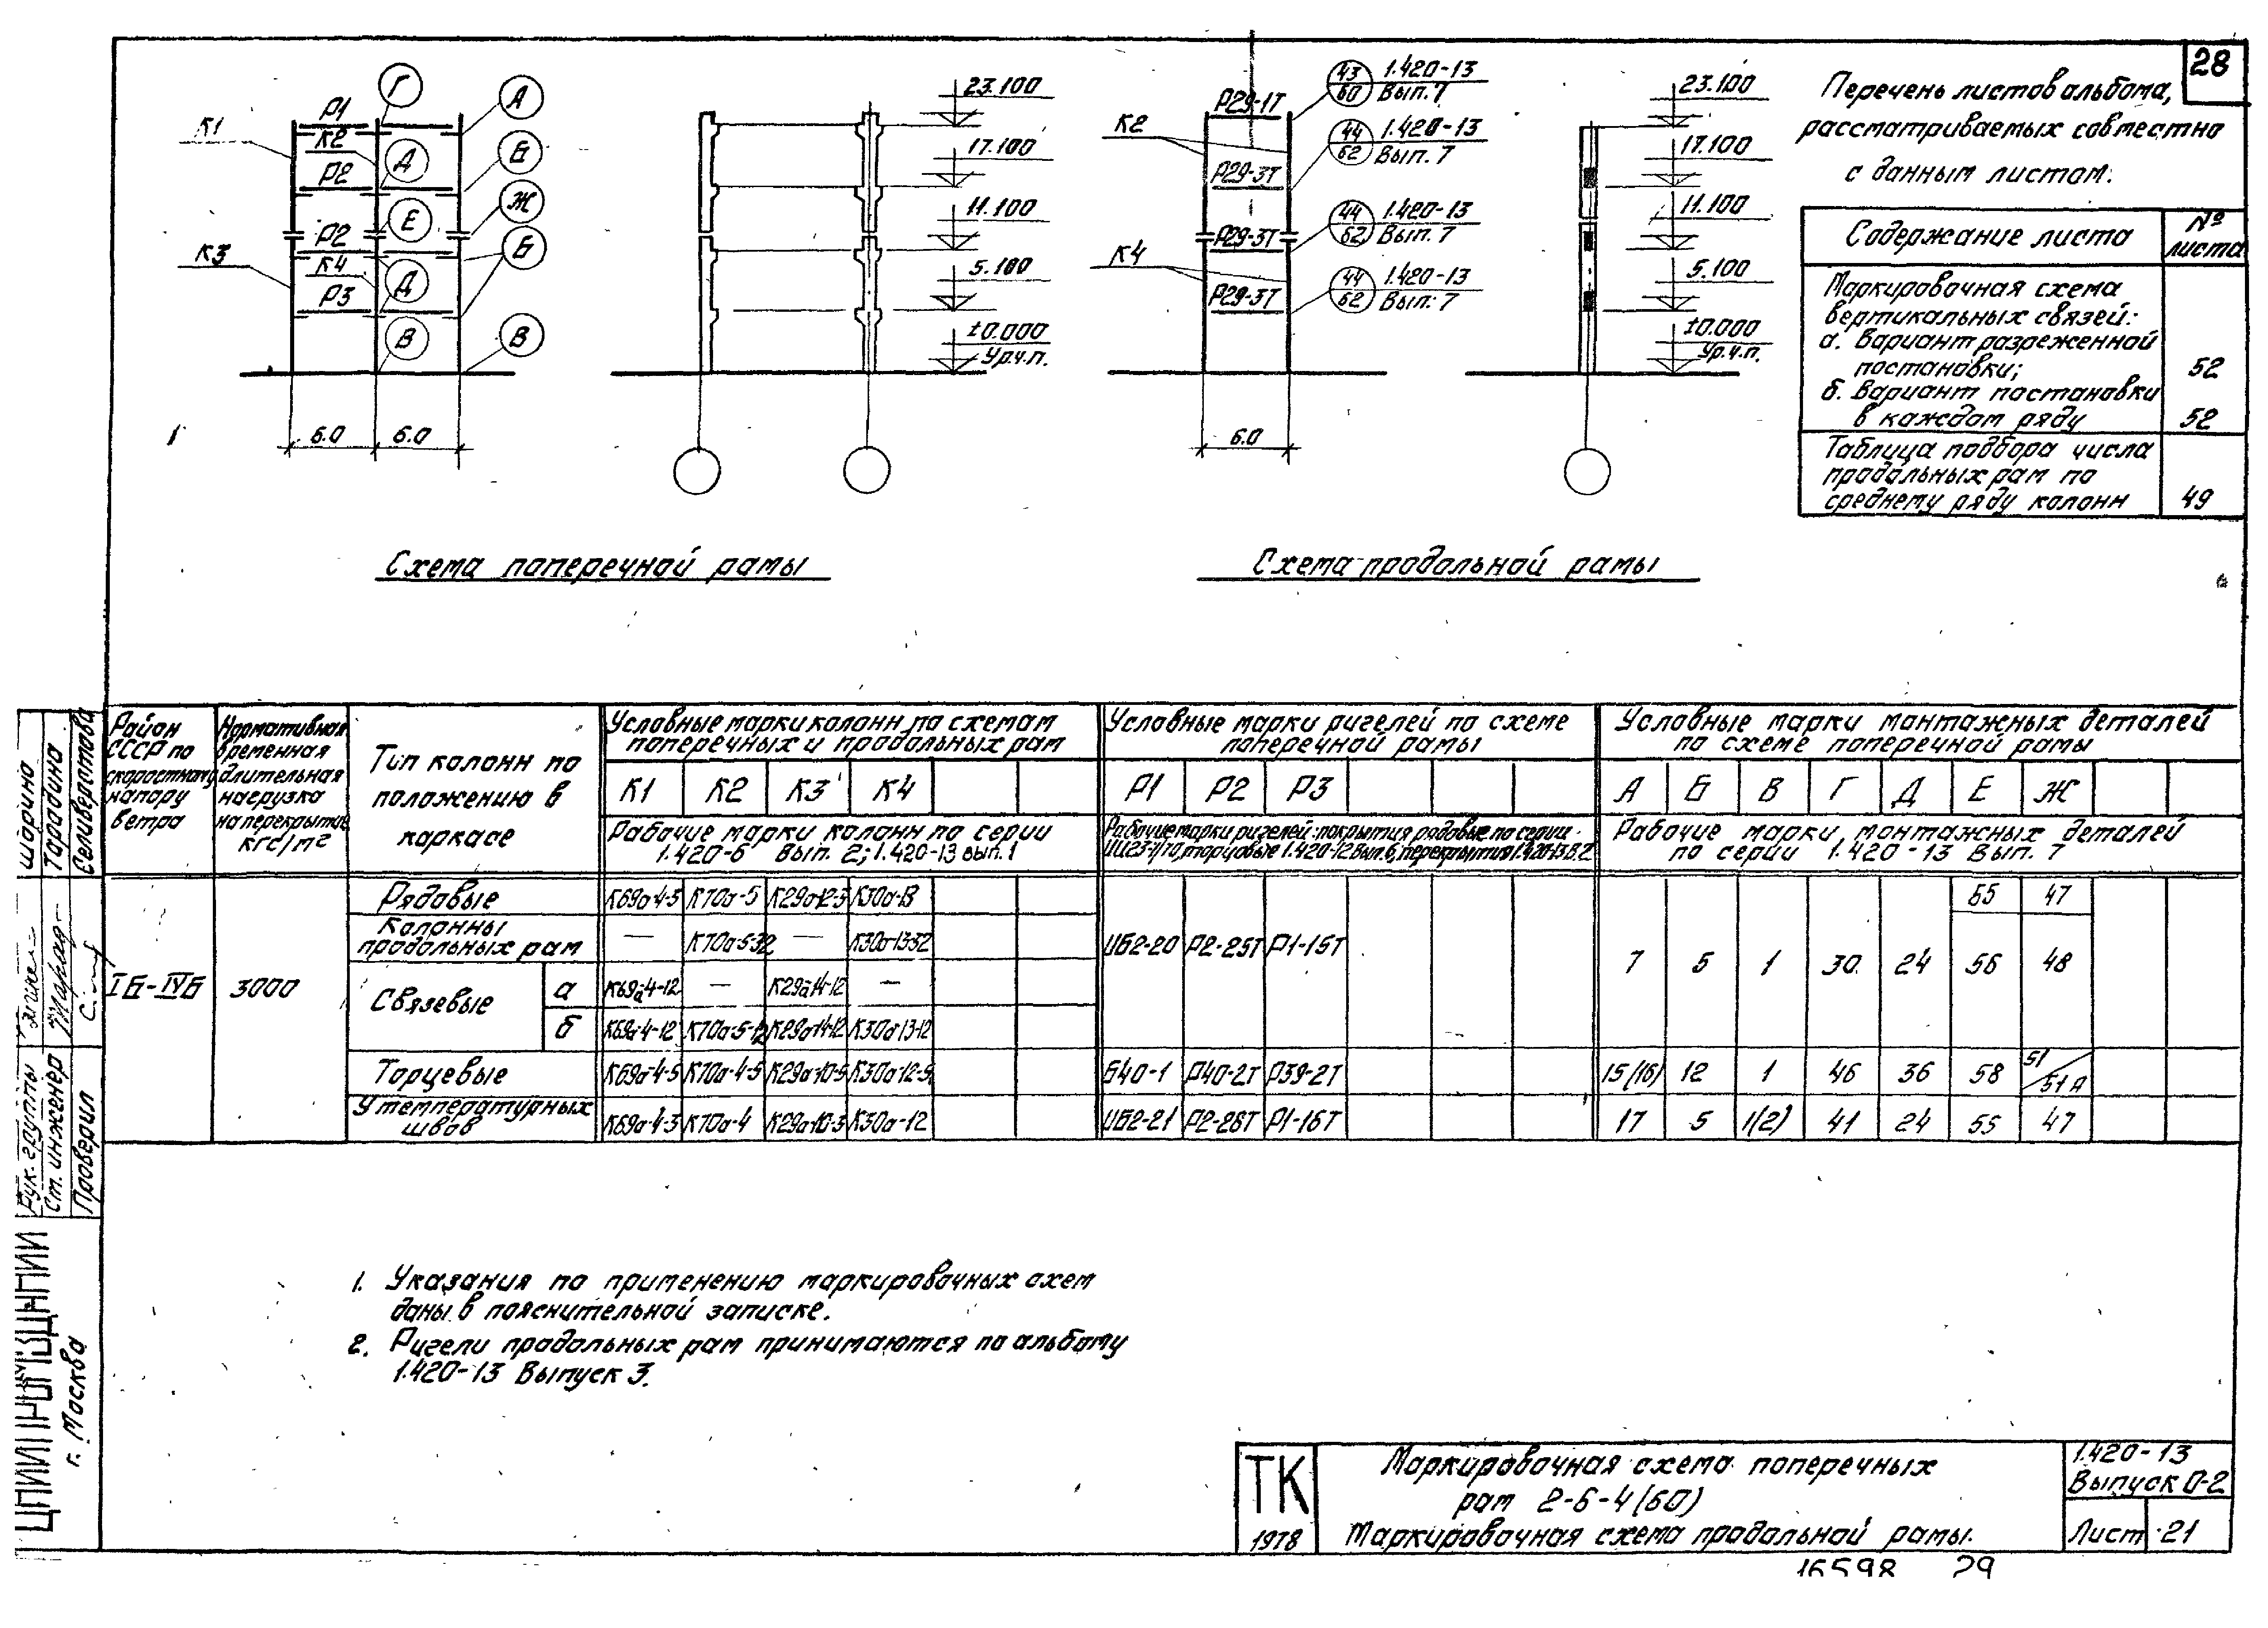 28
Г
А
Р1
К1
К2
Д
Б
Р2
Ж
Е
Р2
К3
К4
Б
Д
Р3
В
В
6.0
6.0
23.100
17.100
11.100
5.100
±0.000
Ур.ч.п.
Схема поперечной рамы
43
60
1.420-13
Вып. 7
Р29-1Т
К2
44
62
1.420-13
Вып. 7
Р29-3Т
44
62
1.420-13
Вып. 7
Р29-3Т
К4
44
62
1.420-13
Вып. 7
Р29-3Т
6.0
23.100
17.100
11.100
5.100
±0.000
Ур.ч.п.
Схема продольной рамы
Перечень листов альбома,
рассматриваемых совместно
с данным листом:
Содержание листа
№ листа
Маркировочная схема
вертикальных связей:
а. Вариант разреженной
постановки; 52
б. Вариант постановки
в каждом ряду 52
Таблица подбора числа
продольных рам по
среднему ряду колонн 49
Район СССР по скоростному напору ветра
Нормативная временная длительная нагрузка на перекрытие кгс/м²
Тип колонн по положению в каркасе
Условные марки колонн по схемам
поперечных и продольных рам
К1 К2 К3 К4
Рабочие марки колонн по серии
1.420-6 Вып. 2; 1.420-13 вып. 1
Условные марки ригелей по схеме
поперечной рамы
Р1 Р2 Р3
Рабочие марки ригелей: покрытия рядовые по серии
ИИ23-1/70, торцовые 1.420-12 Вып. 6, перекрытия 1.420-13 В. 2
Условные марки монтажных деталей
по схеме поперечной рамы
А Б В Г Д Е Ж
Рабочие марки монтажных деталей
по серии 1.420-13 Вып. 7
IБ-IVБ 3000
Рядовые К69а-4-5 К70а-5 К29а-12-3 К30а-13
Колонны продольных рам — К70а-5-32 — К30а-13-32
Связевые
а К69а-4-12 — К29а-14-12 —
б К69а-4-12 К70а-5-12 К29а-14-12 К30а-13-12
ИБ2-20 Р2-25Т Р1-15Т
7 5 1 30 24
55 47
56 48
Торцевые К69а-4-5 К70а-4-5 К29а-10-5 К30а-12-5 Б40-1 Р40-2Т Р39-2Т 15(16) 12 1 46 36 58 51/51А
У температурных швов К69а-4-3 К70а-4 К29а-10-3 К30а-12 ИБ2-21 Р2-26Т Р1-16Т 17 5 1(2) 41 24 55 47
1. Указания по применению маркировочных схем
даны в пояснительной записке.
2. Ригели продольных рам принимаются по альбому
1.420-13 Выпуск 3.
Рук. группы Шарина
Ст. инженер Тарадина
Проверил Селивёрстова
г. Москва
ТК
1978
Маркировочная схема поперечных
рам 2-6-4(60)
Маркировочная схема продольной рамы.
1.420-13
Выпуск 0-2
Лист 21
16598 29